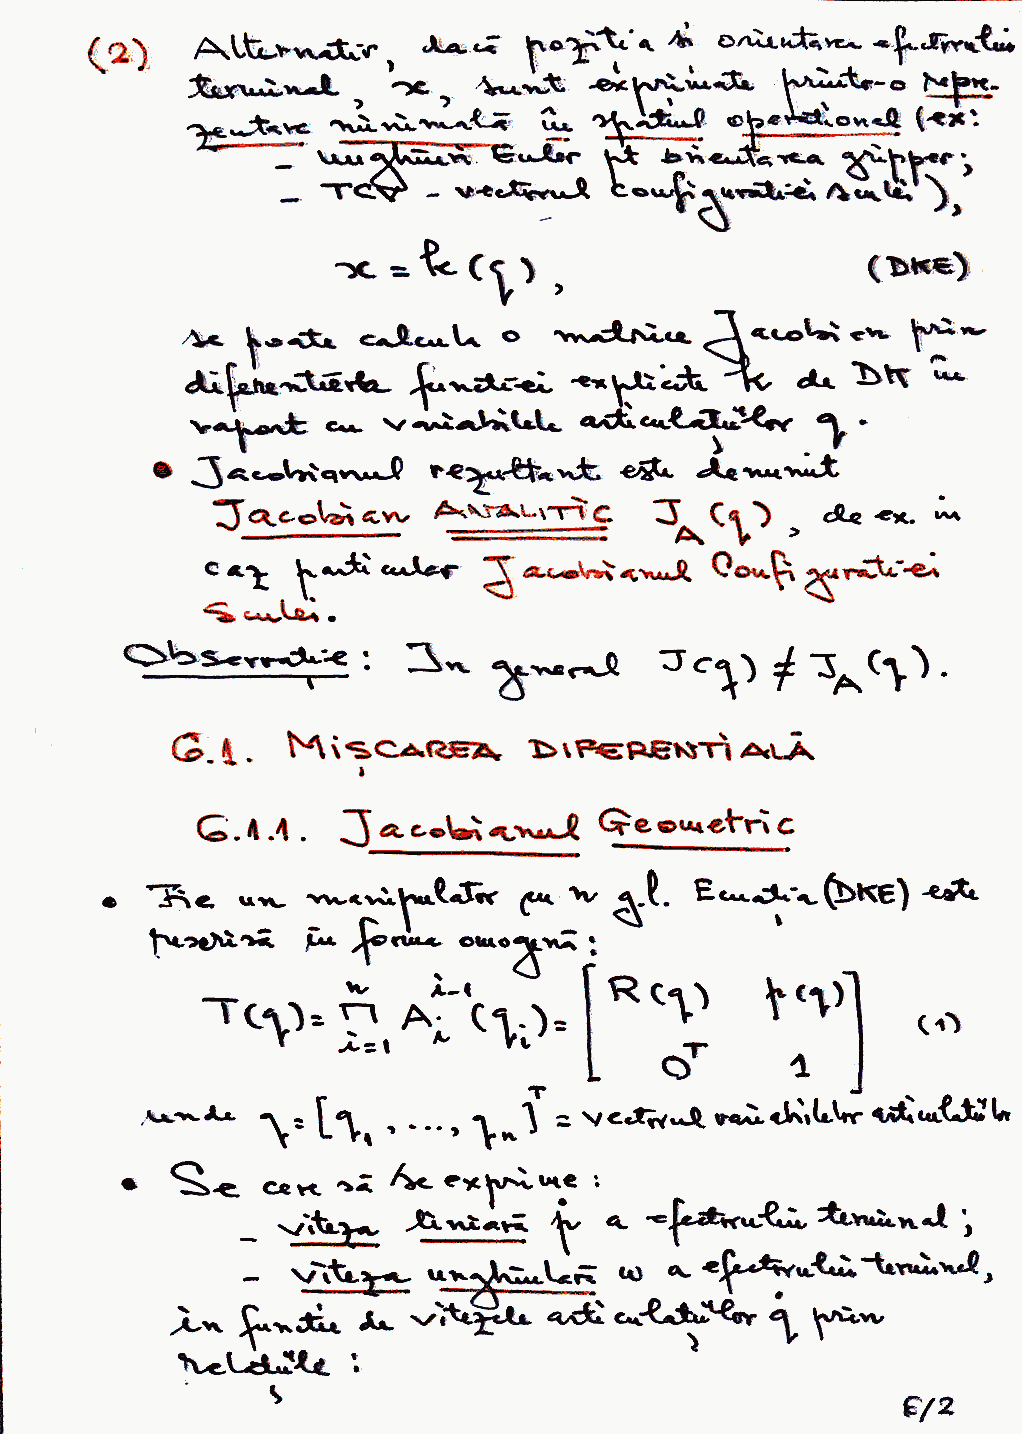 (2) Alternativ, dacă poziția și orientarea efectorului
terminal, x, sunt exprimate printr-o repre-
zentare minimală în spațiul operațional (ex:
- unghiuri Euler pt orientarea gripper;
- TCV - vectorul configurației sculei),
x = k(q), (DKE)
se poate calcula o matrice Jacobian prin
diferențierea funcției explicite k de DK în
raport cu variabilele articulațiilor q.
• Jacobianul rezultant este denumit
Jacobian ANALITIC J_A(q), de ex. în
caz particular Jacobianul Configurației
Sculei.
Observație: In general J(q) ≠ J_A(q).
6.1. MIȘCAREA DIFERENTIALĂ
6.1.1. Jacobianul Geometric
• Fie un manipulator cu n g.l. Ecuația (DKE) este
rescrisă în forma omogenă:
T(q) = ∏_{i=1}^{n} A_i^{i-1}(q_i) = [R(q) p(q); 0^T 1] (1)
unde q = [q_1, ..., q_n]^T = vectorul variabilelor articulațiilor
• Se cere să se exprime:
- viteza liniară ṗ a efectorului terminal;
- viteza unghiulară ω a efectorului terminal,
în funcție de vitezele articulațiilor q̇ prin
relațiile:
6/2